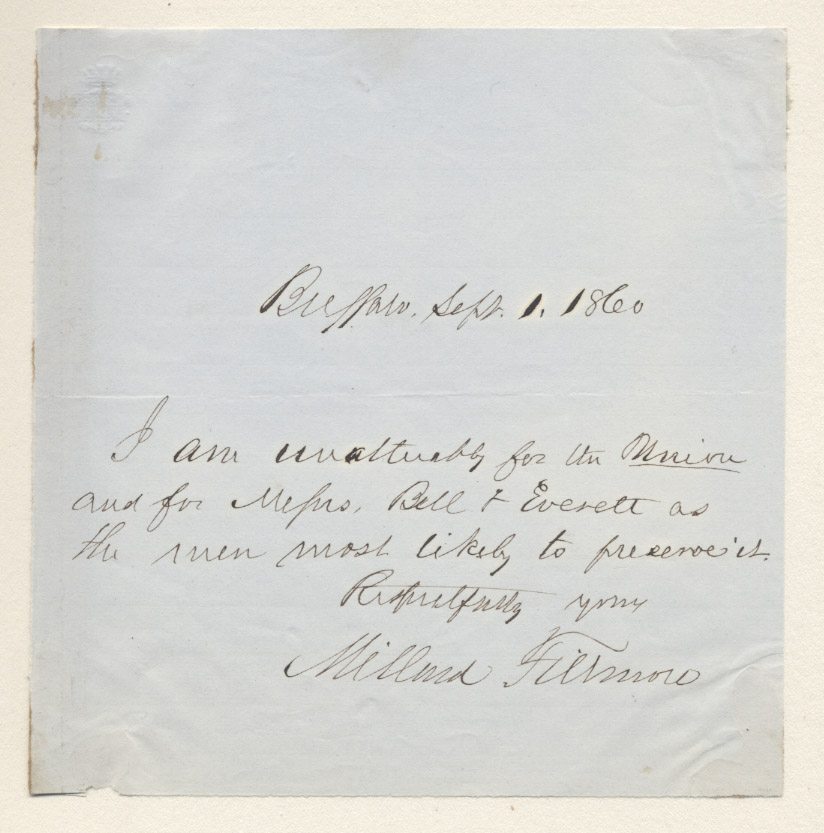 Buffalo, Sept. 1. 1860
I am unalterably for the Union
and for Messrs. Bell & Everett as
the men most likely to preserve it.
Respectfully yours
Millard Fillmore